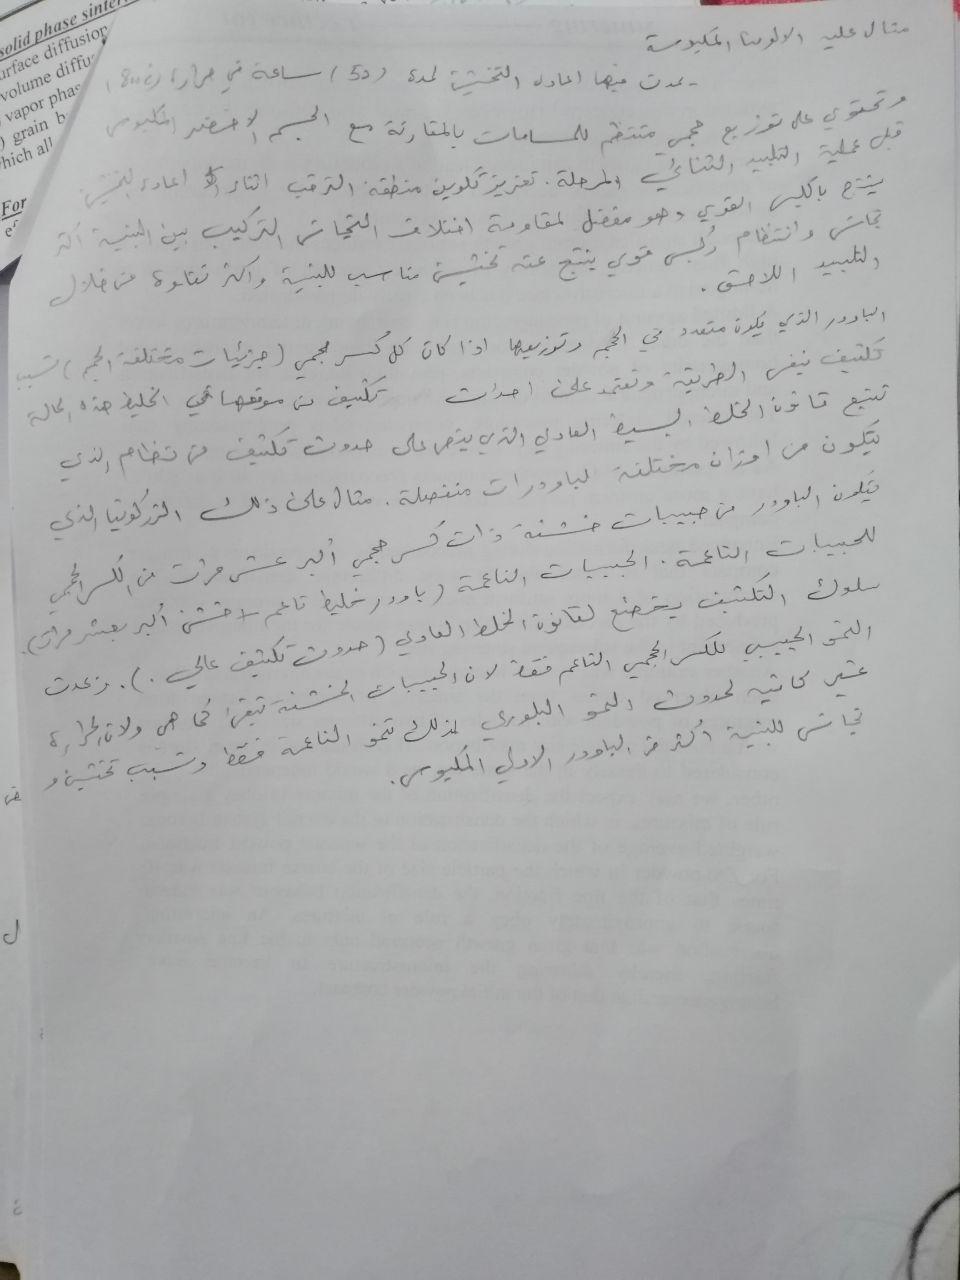 solid phase sinter
urface diffusion
volume diffu
vapor phas
) grain b
hich all
For
مثال عليه الالومينا المكبوسة
- يحدث فيها اعادة التخشين لمدة (50) ساعة في حرارة (800
وتحتوي على توزيع حجمي منتظم للمسامات بالمقارنة مع الجسم الاخضر المكبوس
قبل عملية التلبيد الثنائي المرحلة. تعزيز تكوين منطقة الترقب اثناء اعادة التخشين
ينتج بالكبس القوي وهو مفضل لمقاومة اختلاف التجانس التركيب بين البنية اكثر
تجانس وانتظام وكبس قوي ينتج عنه تخشين مناسب للبنية واكثر تفاوة من خلال
التلبيد اللاحق.
الباودر الذي يكون متعدد في الحجم وتوزيعها اذا كان كل كسر حجمي (جزئيات مختلفة الحجم) تسبب
تكثيف بنفس الطريقة وتعتمد على احداث تكثيف من موقعها في الخليط هذه الحالة
تتبع قانون الخلط البسيط العادي الذي ينص على حدوث تكثيف من نظام الذي
يتكون من اوزان مختلفة لباودرات منفصلة. مثال على ذلك الزركونيا الذي
يتكون الباودر من حبيبات خشنة ذات كسر حجمي أكبر عشر مرات من الكسر الحجمي
للحبيبات الناعمة. الحبيبات الناعمة (باودر خليط ناعم لاخشن أكبر بعشر مرات).
سلوك التكثيف يخضع لقانون الخلط العادي (حدوث تكثيف عالي.). وحدث
النمو الحبيبي للكسر الحجمي الناعم فقط لان الحبيبات الخشنة تبقى كما هي ولان الحرارة
غير كافية لحدوث النمو البلوري لذلك تنمو الناعمة فقط وتسبب تخشين و
تجانس للبنية أكثر من الباودر الاولي المكبوس.